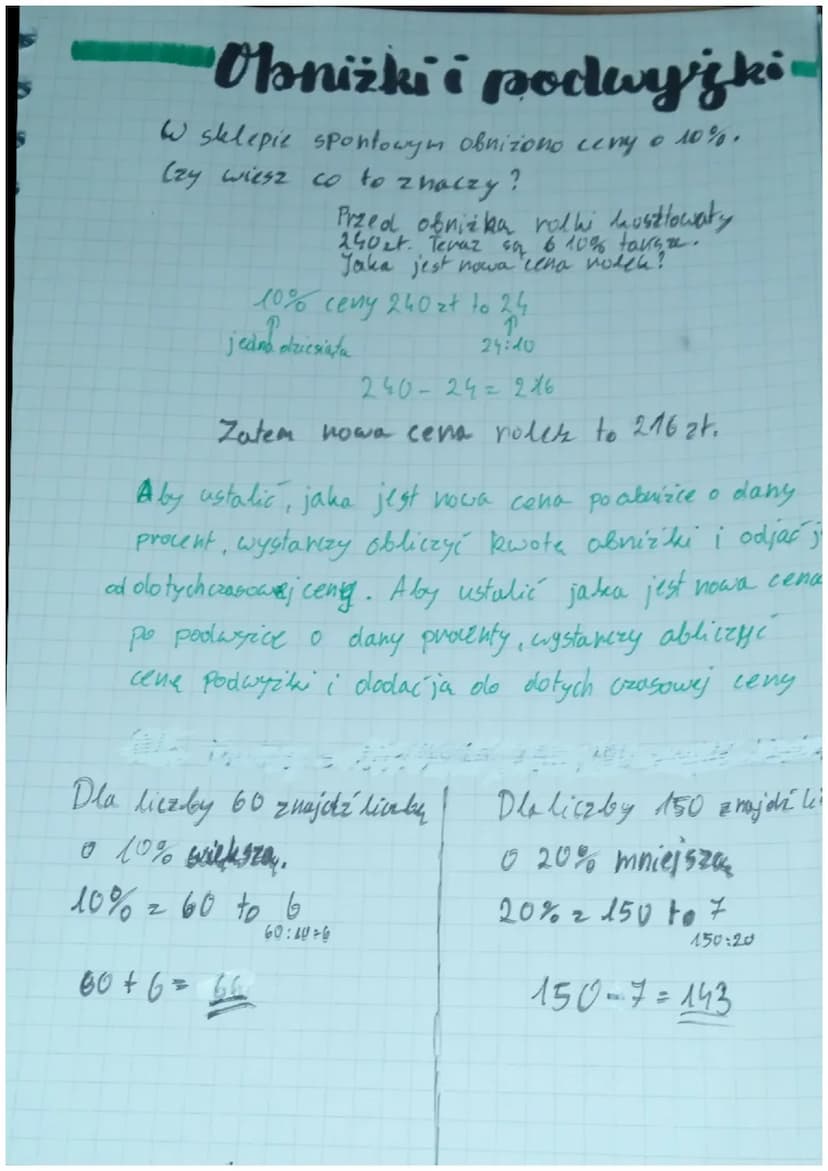 Obniżki i podwyżki
W sklepie sportowym obniżono ceny o 10%.
Czy wiesz co to znaczy?
Przed obniżką rolki kosztowały
240 zł. Teraz są o 10% tańsze.
Jaka jest nowa cena rolek?
10% ceny 240 zł to 24
jedna dziesiąta 24:10
240 - 24 = 216
Zatem nowa cena rolek to 216 zł.
Aby ustalić, jaka jest nowa cena po obniżce o dany
procent, wystarczy obliczyć kwotę obniżki i odjąć j
od dotychczasowej ceny. Aby ustalić jaka jest nowa cena
po podwyżce o dany procenty, wystarczy obliczyć
cenę podwyżki i dodać ja do dotych czasowej ceny
Dla liczby 60 znajdź liczbę
o 10% większą.
10% z 60 to 6
60:10=6
60 + 6 = 66
Dla liczby 150 znajdź li
o 20% mniejszą
20% z 150 to 7
150:20
150 - 7 = 143